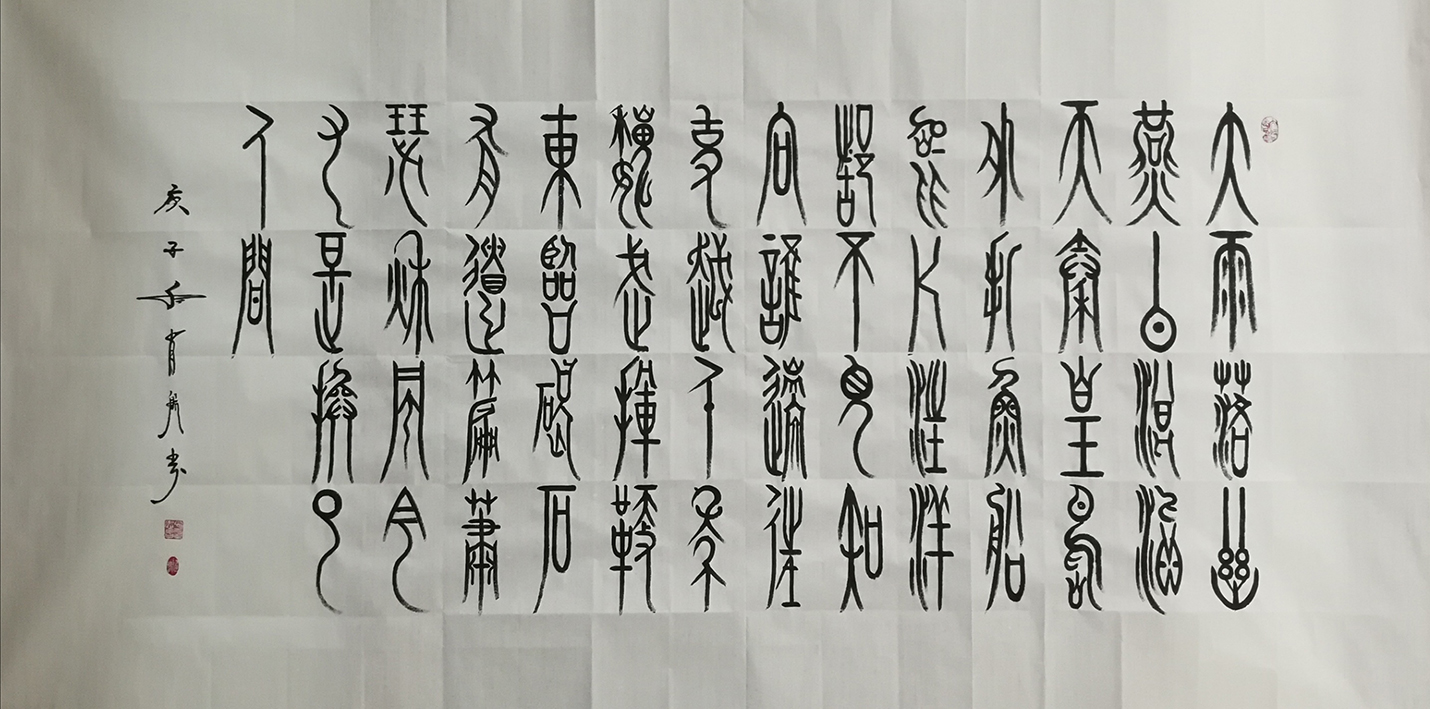 大雨落幽
燕白浪滔
天秦皇島
外打魚船
一片汪洋
都不見知
向誰邊往
事越千年
魏武揮鞭
東臨碣石
有遺篇蕭
瑟秋風今
又是換了
人間
庚子年